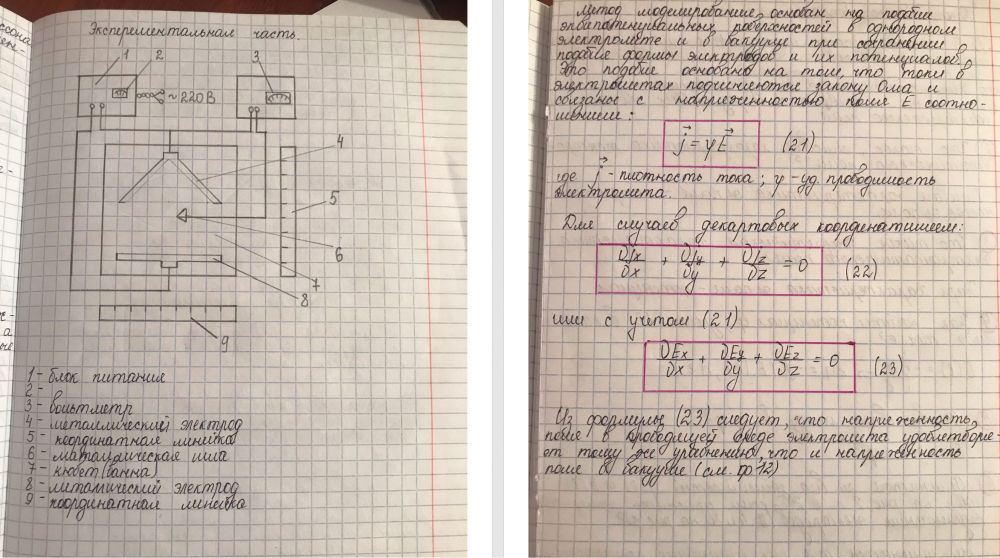 Экспериментальная часть.
1
2
3
~220В
4
5
6
7
8
9
1 - блок питания
2 -
3 - вольтметр
4 - металлический электрод
5 - координатная линейка
6 - металлическая игла
7 - кювет (ванна)
8 - метализ­ческий электрод
9 - координатная линейка
Метод моделирование основан на подобие
эквипотенциальных поверхностей в однородном
электролите и в вакууме при сохранении
подобие формы электродов и их потенциалов.
Это подобие основано на том, что токи в
электролитах подчиняются закону Ома и
связаное с напряженностью поля E соотно-
шением:
j⃗ = γE⃗ (21)
где j⃗ - плотность тока; γ - уд. проводимость
электролита.
Для случаев декартовых координат имеем:
∂jx/∂x + ∂jy/∂y + ∂jz/∂z = 0 (22)
или с учетом (21)
∂Ex/∂x + ∂Ey/∂y + ∂Ez/∂z = 0 (23)
Из формулы (23) следует, что напряженность
поле в проводящей среде электролита удовлетворя-
ет тому же уравнению, что и напряженность
поле в вакууме (см. фр12)